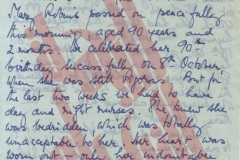 Mary Robinson passed on peacefully
this morning, aged 90 years and
2 months. We celebrated her 90th
birthday successfully on 8th October
when she was still vigorous. But for
the last two weeks we had to have
day and night nurses. She knew she
was bedridden, which was totally
unacceptable to her. Her heart was
worn out - only her indomitable